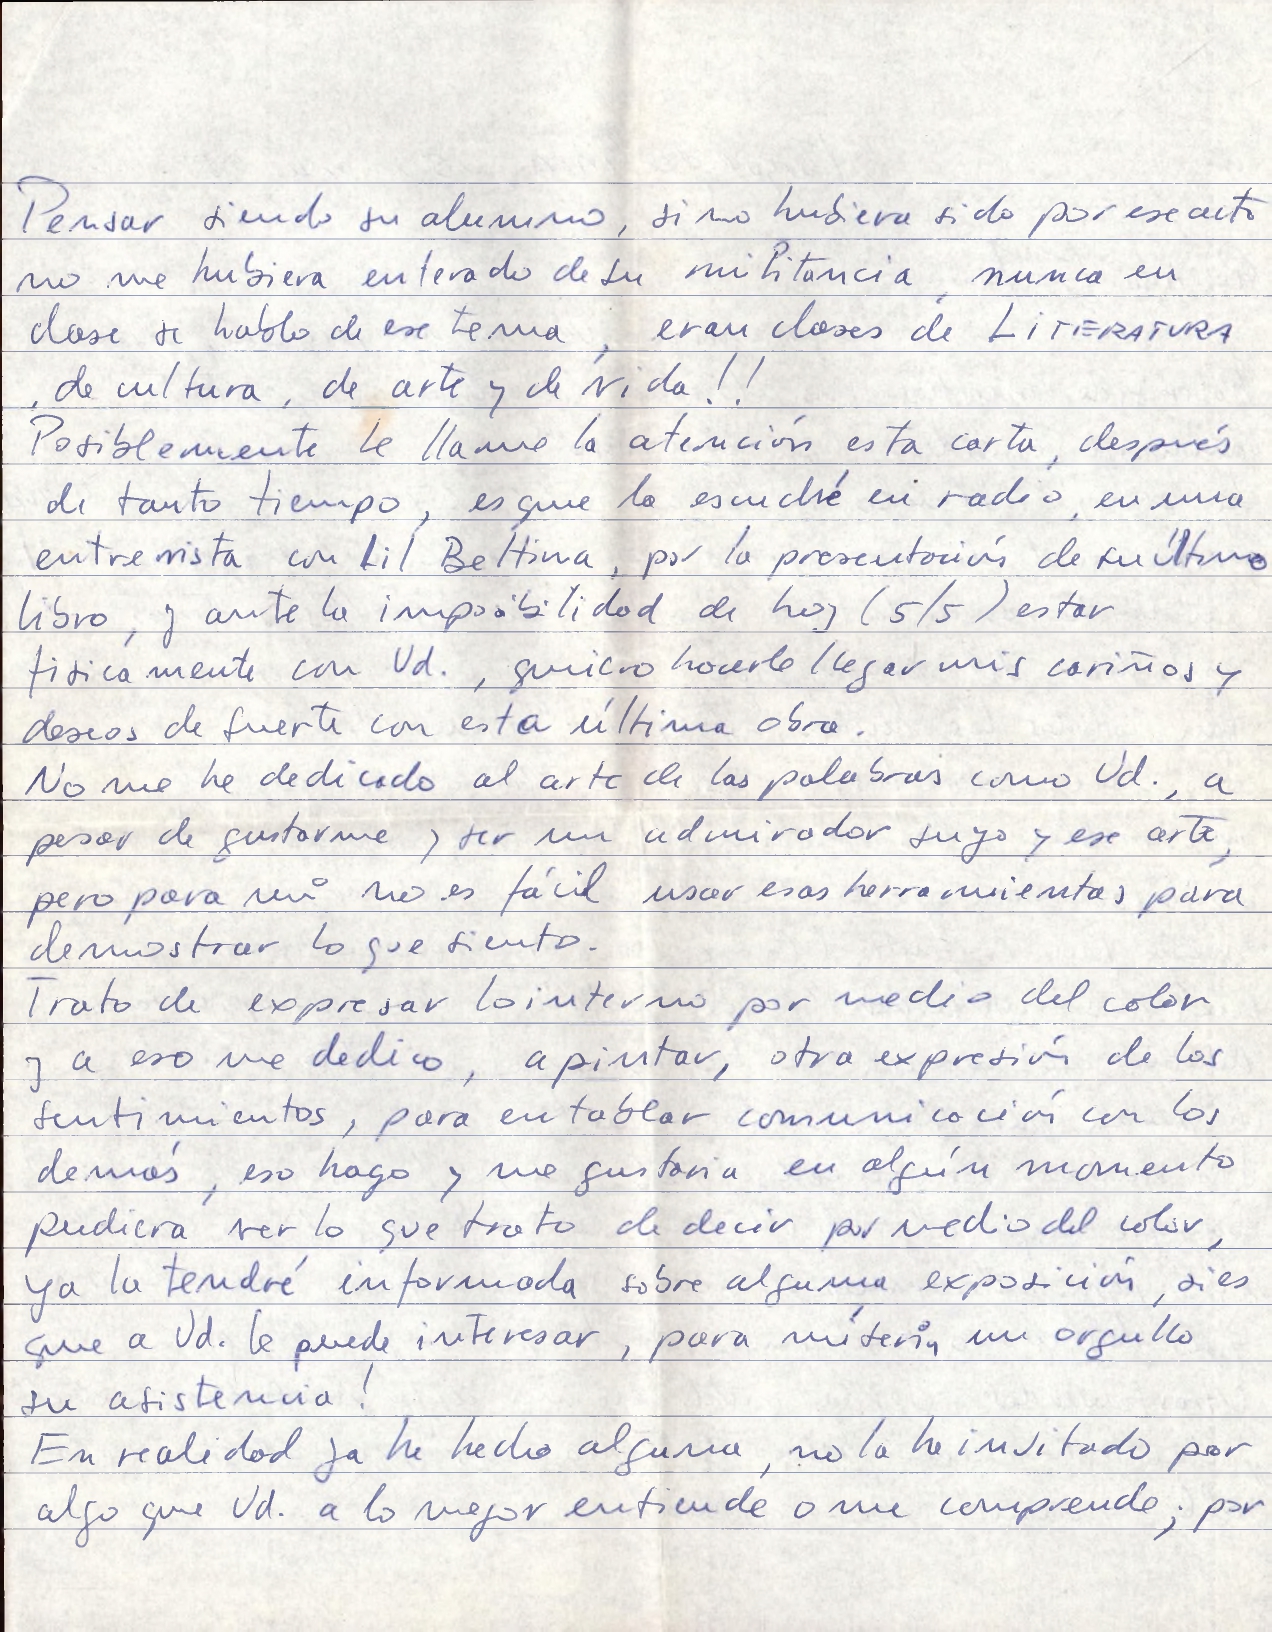 Pensar siendo su alumno, si no hubiera sido por ese acto
no me hubiera enterado de su militancia, nunca en
clase se hablo de ese tema, eran clases de LITERATURA
, de cultura, de arte y de vida!!
Posiblemente le llame la atención esta carta, después
de tanto tiempo, es que la escuché en radio, en una
entrevista con Lil Bettina, por la presentación de su último
libro, y ante la imposibilidad de hoy (5/5) estar
fisicamente con Ud., quiero hacerle llegar mis cariños y
deseos de suerte con esta última obra.
No me he dedicado al arte de las palabras como Ud., a
pesar de gustarme y ser un admirador suyo y ese arte,
pero para mí no es fácil usar esas herramientas para
demostrar lo que siento.
Trato de expresar lo interno por medio del color
y a eso me dedico, a pintar, otra expresión de los
sentimientos, para entablar comunicación con los
demás, eso hago y me gustaria en algún momento
pudiera ver lo que trato de decir por medio del color,
ya la tendré informada sobre alguna exposición, si es
que a Ud. le puede interesar, para mí sería un orgullo
su asistencia!
En realidad ya he hecho alguna, no la he invitado por
algo que Ud. a lo mejor entiende o me comprende; por